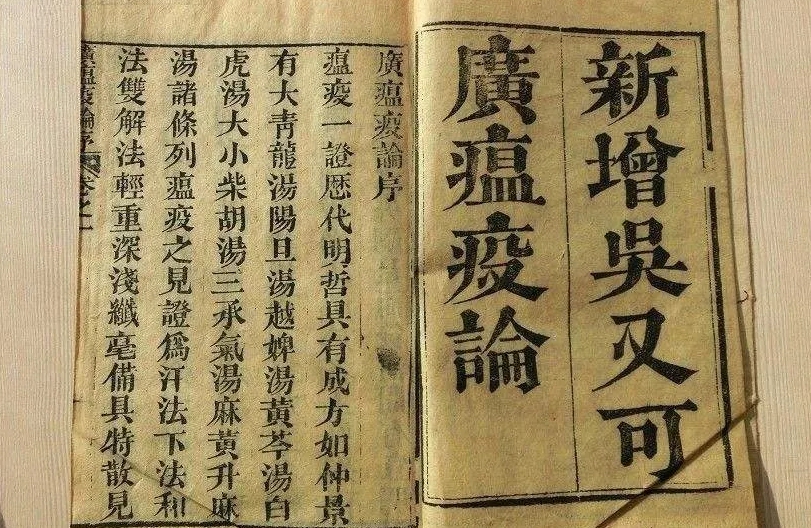 新增吳又可
廣瘟疫論
廣瘟疫論序
瘟疫一證歴代明哲具有成方如仲景
有大靑龍湯陽旦湯越婢湯黃芩湯白
虎湯大小柴胡湯三承氣湯麻黃升麻
湯諸條列瘟疫之見證爲汗法下法和
法雙解法輕重深淺纖毫備具特散見
廣瘟疫論序 卷之一